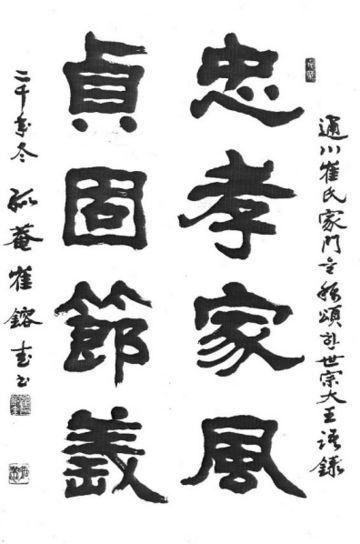 通川崔氏家門을 稱頌한 世宗大王語錄
忠孝家風
貞固節義
二千年冬 孤菴 崔鎔春書